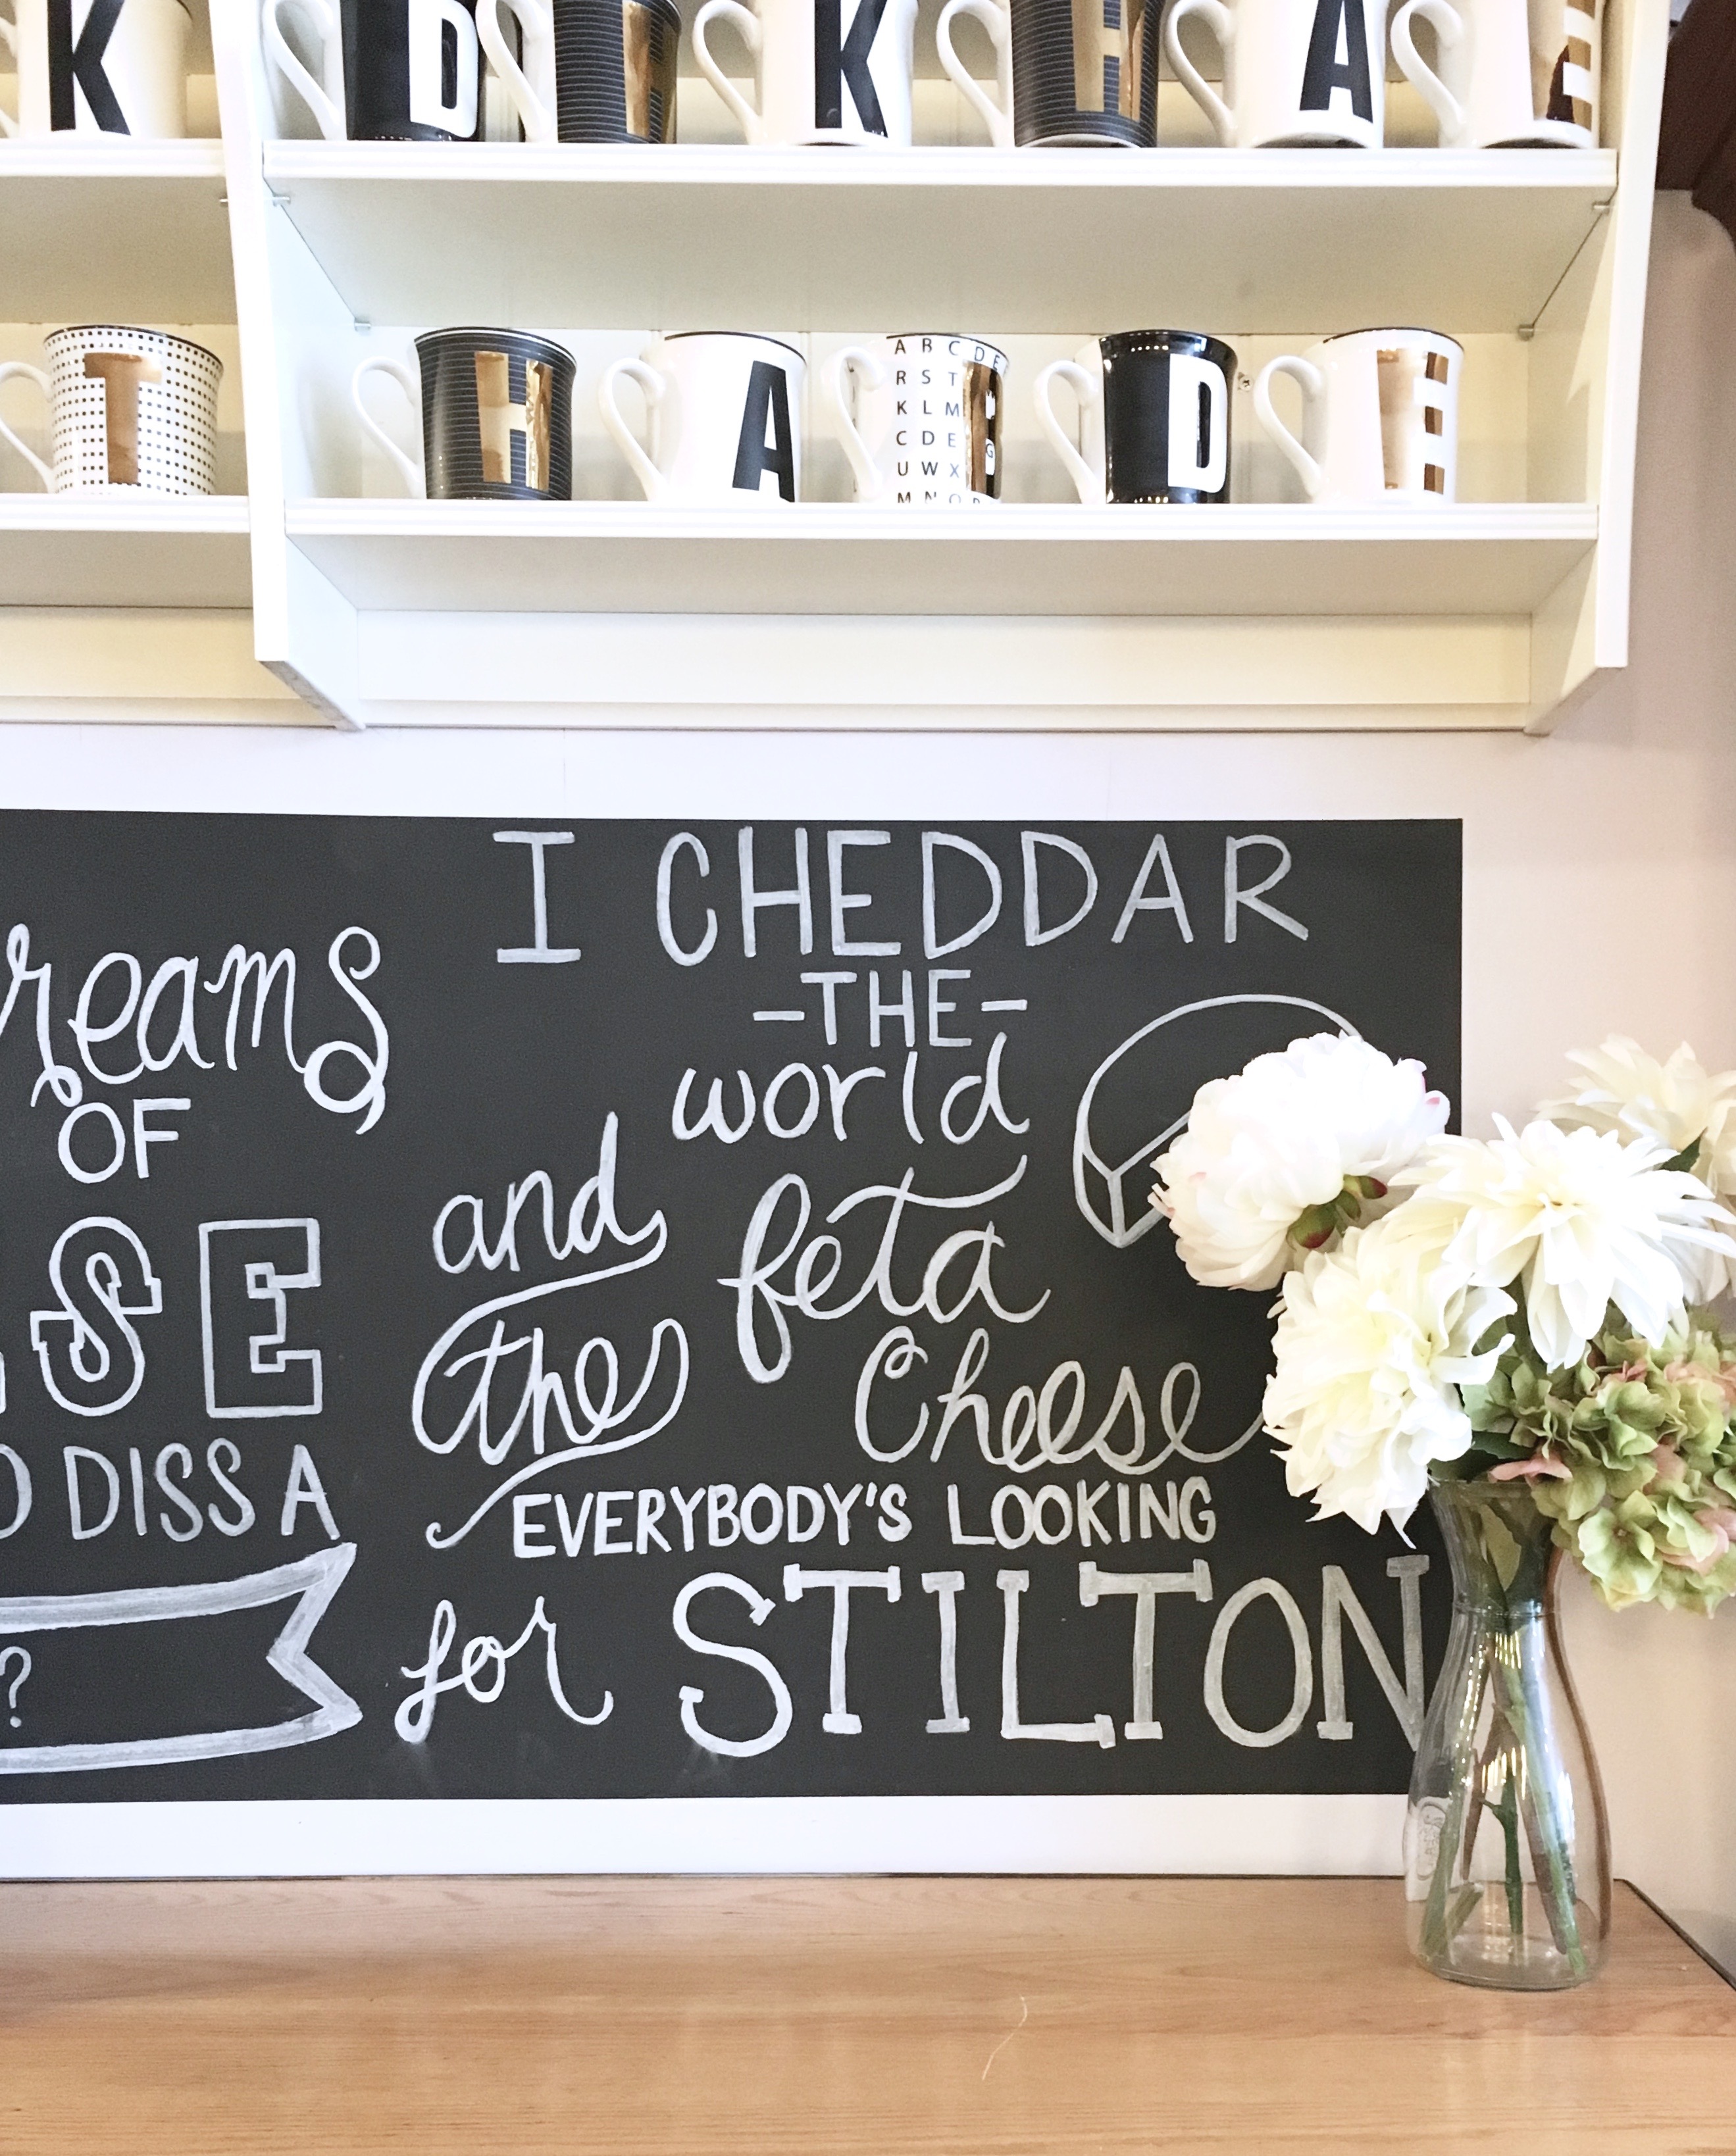 K D I K H A E
T H A D E
A B C D E
R S T
K L M
C D E G
U W X
M N O P
reams
OF
SE
DISS A
?
I CHEDDAR
-THE-
world
and feta
the Cheese
EVERYBODY'S LOOKING
for STILTON